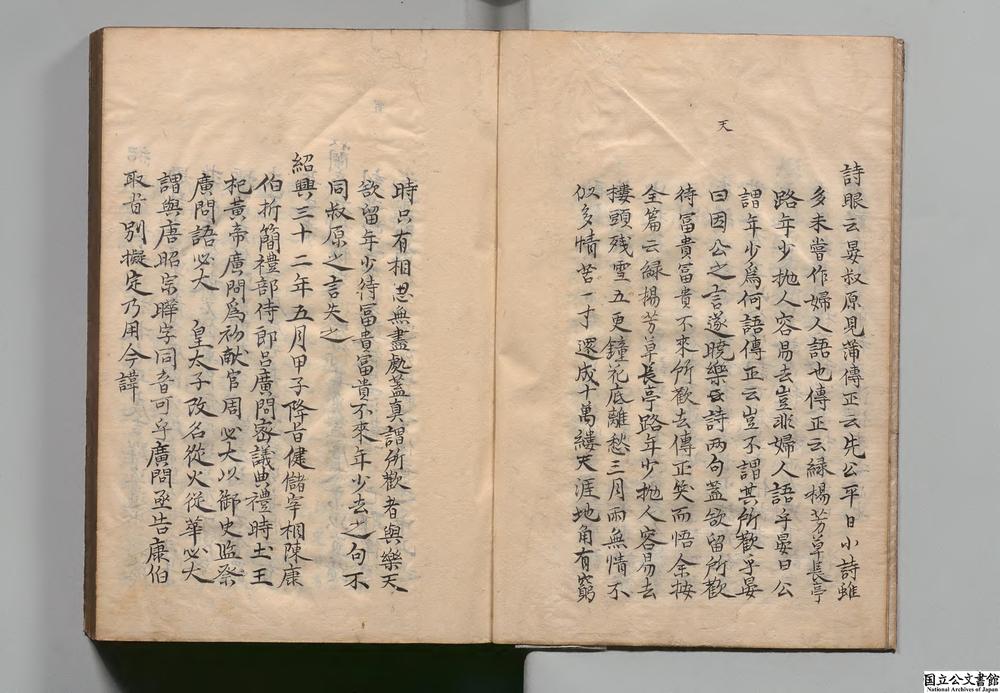 天
詩眼云晏叔原見蒲傳正云先公平日小詩雖
多未嘗作婦人語也傳正云緑楊芳草長亭
路年少抛人容易去豈非婦人語乎晏曰公
謂年少爲何語傳正云豈不謂其所歡乎晏
曰因公之言遂曉樂天詩兩句蓋欲留所歡
待冨貴冨貴不來所歡去傳正笑而悟余按
全篇云緑楊芳草長亭路年少抛人容易去
樓頭残夢五更鐘花底離愁三月雨無情不
似多情苦一寸還成千萬縷天涯地角有窮
時只有相思無盡處蓋真謂所歡者與樂天
欲留年少待冨貴冨貴不來年少去之句不
同叔原之言失之
紹興三十二年五月甲子降旨健儲宰相陳康
伯折簡禮部侍郎呂廣問密議典禮時土王
祀黄帝廣問爲初献官周必大以御史監祭
廣問語必大　皇太子改名從火從華必大
謂與唐昭宗曄字同音可乎廣問亟告康伯
取旨別擬定乃用今諱
国立公文書館
National Archives of Japan